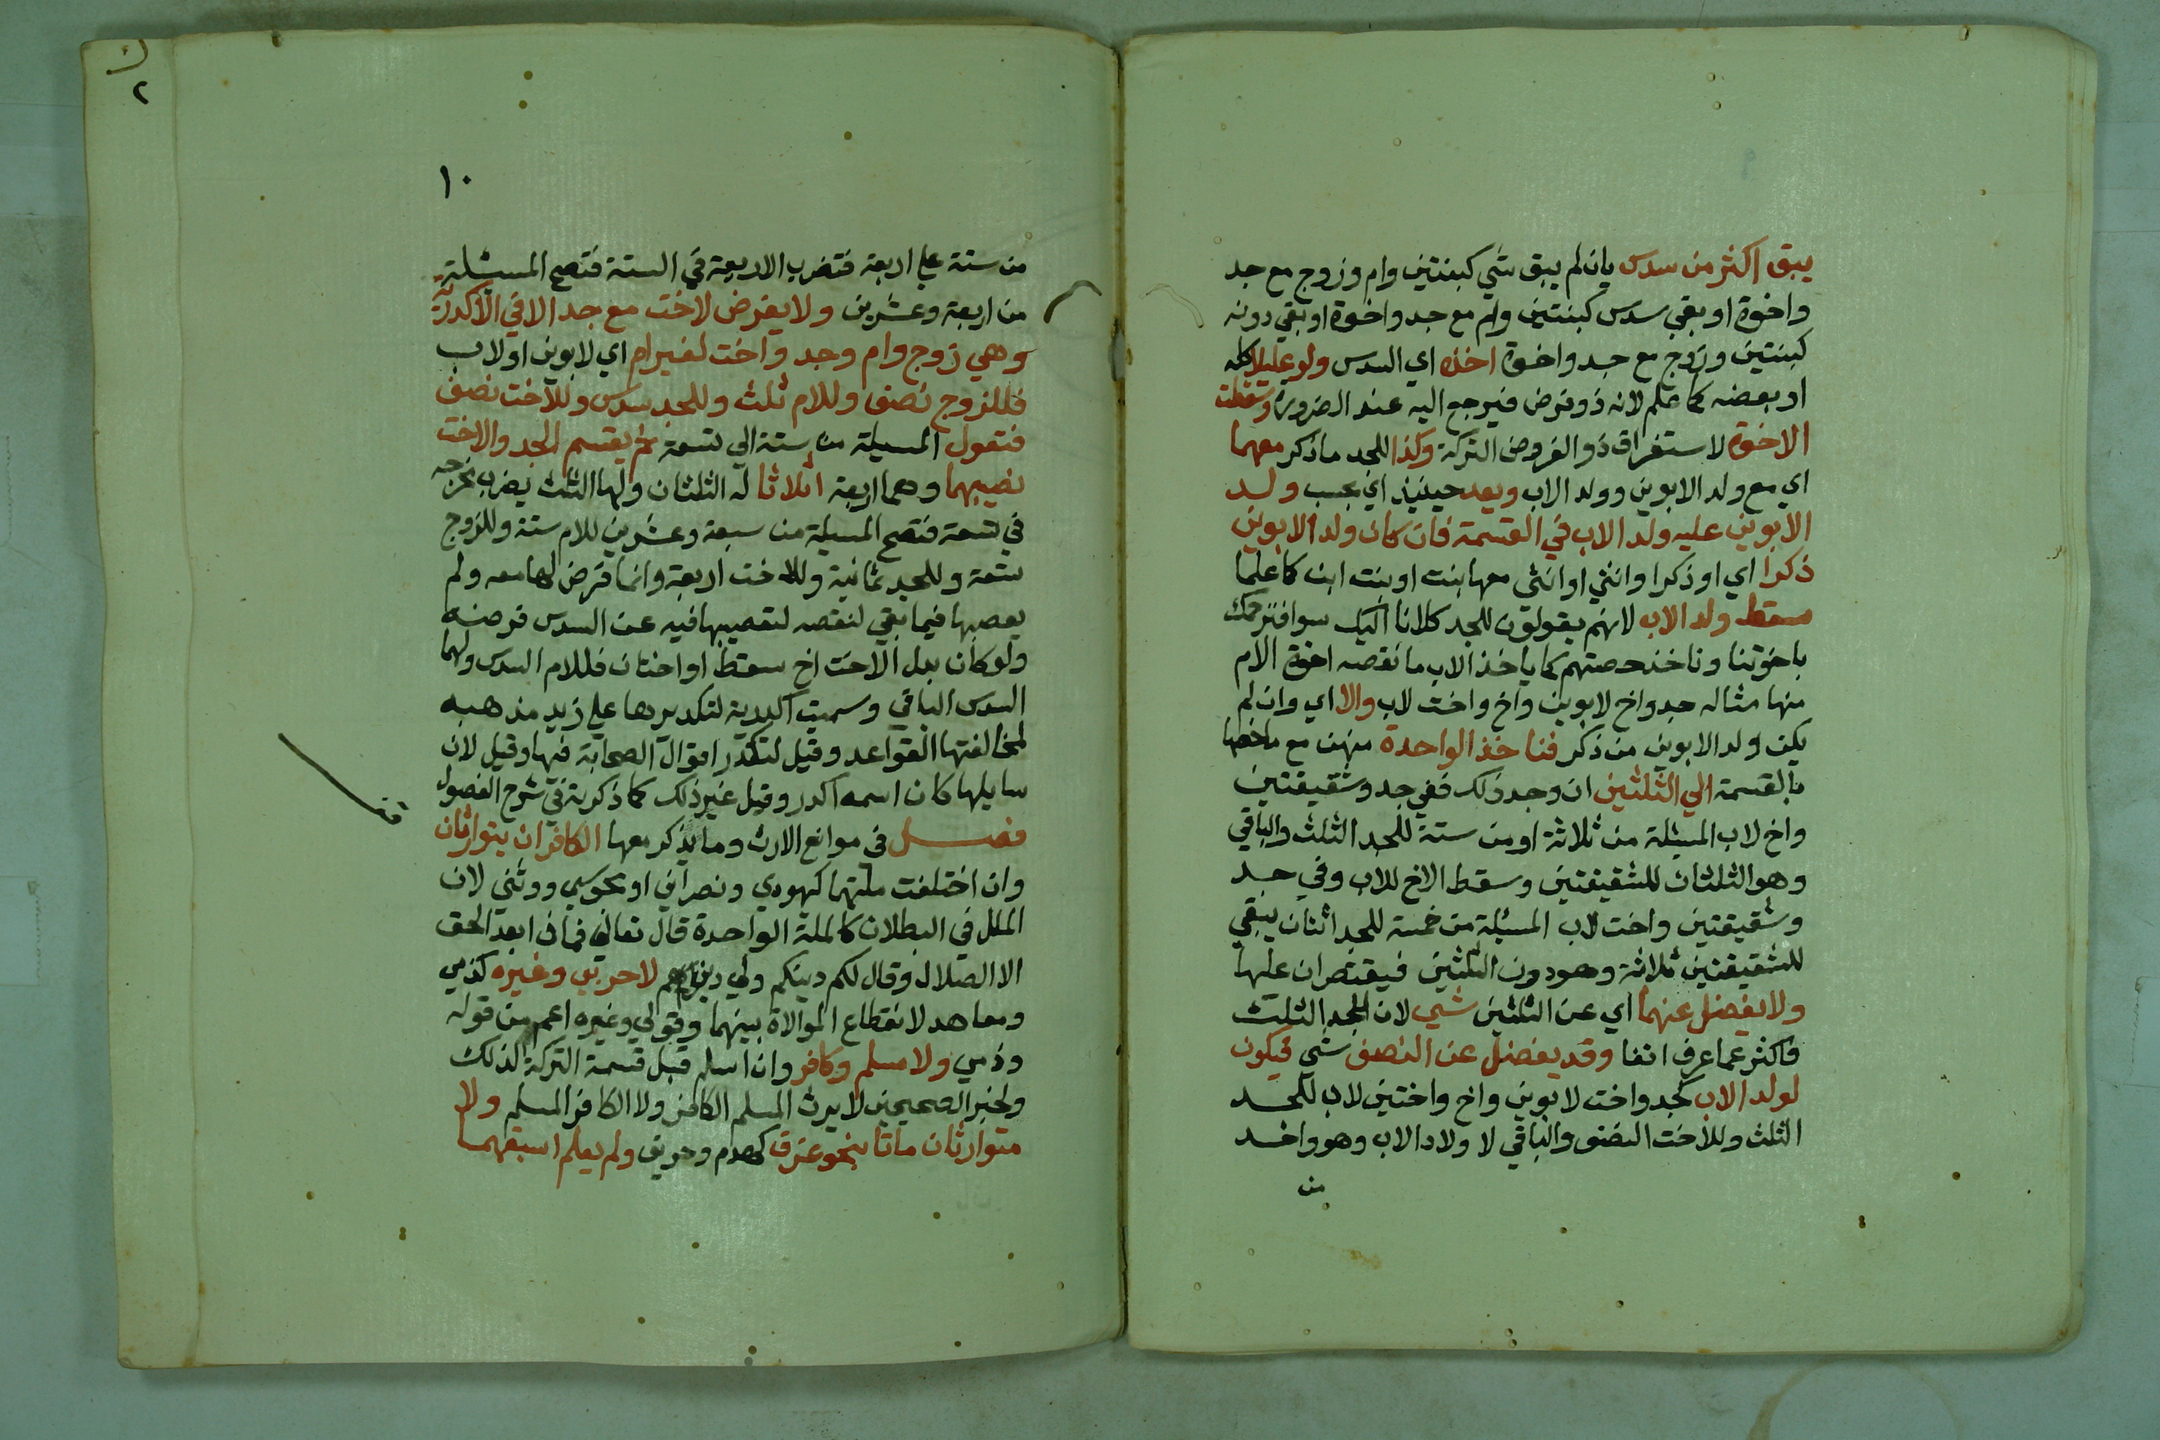 يبق اكثر من سدس بان لم يبق شي كبنتين وام وزوج مع جد
واخوة او بقي سدس كبنتين وام مع جد واخوة او بقي دونه
كبنتين وزوج مع جد واخوة اخذه اي السدس ولو عايلا كله
او بعضه كما علم لانه ذو فرض فيرجع اليه عند الضرورة وسقطت
الاخوة لاستغراق ذو الفروض التركة وكذا للجد ما ذكر معهما
اي مع ولد الابوين وولد الاب ويعد حينيذ اي يحسب ولد
الابوين عليه ولد الاب في القسمة فان كان ولد الابوين
ذكرا اي او ذكرا وانثي او انثى معها بنت او بنت ابن كما علما
سقط ولد الاب لانهم يقولون للجد كلانا اليك سوا فنزحمك
باخوتنا وناخذ حصتهم كما ياخذ الاب ما نقصه اخوة الام
منها مثاله جد واخ لابوين واخ واخت لاب والا اي وان لم
يكن ولد الابوين من ذكر فتاخذ الواحدة منهن مع ما خصها
بالقسمة الي الثلثين ان وجد ذلك ففي جد وشقيقتين
واخ لاب المسئلة من ثلاثة او من ستة للجد الثلث والباقي
وهو الثلثان للشقيقتين وسقط الاخ للاب وفي جد
وشقيقتين واخت لاب المسئلة من خمسة للجد اثنان يبقي
للشقيقتين ثلاثة وهو دون الثلثين فيقتصران عليها
ولا يفضل عنهما اي عن الثلثين شي لان للجد الثلث
فاكثر عما عرف انفا وقد يفضل عن النصف شي فيكون
لولد الاب كجد واخت لابوين واخ واختين لاب للجد
الثلث وللاخت النصف والباقي لا ولاد الاب وهو واحد
من
٢
١٠
من ستة علي اربعة فتضرب الاربعة في الستة فتصح المسئلة
من اربعة وعشرين ولا يفرض لاخت مع جد الا في الاكدرية
وهي زوج وام وجد واخت لغير ام اي لابوين او لاب
فللزوج نصف وللام ثلث وللجد سدس وللاخت نصف
فتعول المسيلة من ستة الي تسعة ثم يقتسم الجد والاخت
نصيبهما وهما اربعة اثلاثا له الثلثان ولها الثلث يضرب مخرجه
في تسعة فتصح المسيلة من سبعة وعشرين للام ستة وللزوج
تسعة وللجد ثمانية وللاخت اربعة وانما فرض لها معه ولم
يعصبها فيما بقي لنقصه لتعصيبها فيه عن السدس فرضه
ولو كان بدل الاخت اخ سقط او اختان فللام السدس ولهما
السدس الباقي وسميت اكدرية لتكديرها علي زيد مذهبه
لمخالفتها القواعد وقيل لتكدر اقوال الصحابة فيها وقيل لان
سايلها كان اسمه اكدر وقيل غير ذلك كما ذكرته في شرح الفصول
فصل في موانع الارث وما يذكر معها الكافران يتوارثان
وان اختلفت ملتهما كيهودي ونصراني او مجوسي ووثني لان
الملل في البطلان كالملة الواحدة قال تعالي فماذا بعد الحق
الا الضلال وقال لكم دينكم ولي دين لا حربي وغيره كذمي
ومعاهد لانقطاع الموالاة بينهما وقولي وغيره اعم من قوله
وذمي ولا مسلم وكافر وان اسلم قبل قسمة التركة لذلك
ولخبر الصحيحين لا يرث المسلم الكافر ولا الكافر المسلم ولا
متوارثان ماتا بنحو غرق كهدم وحريق ولم يعلم اسبقهما